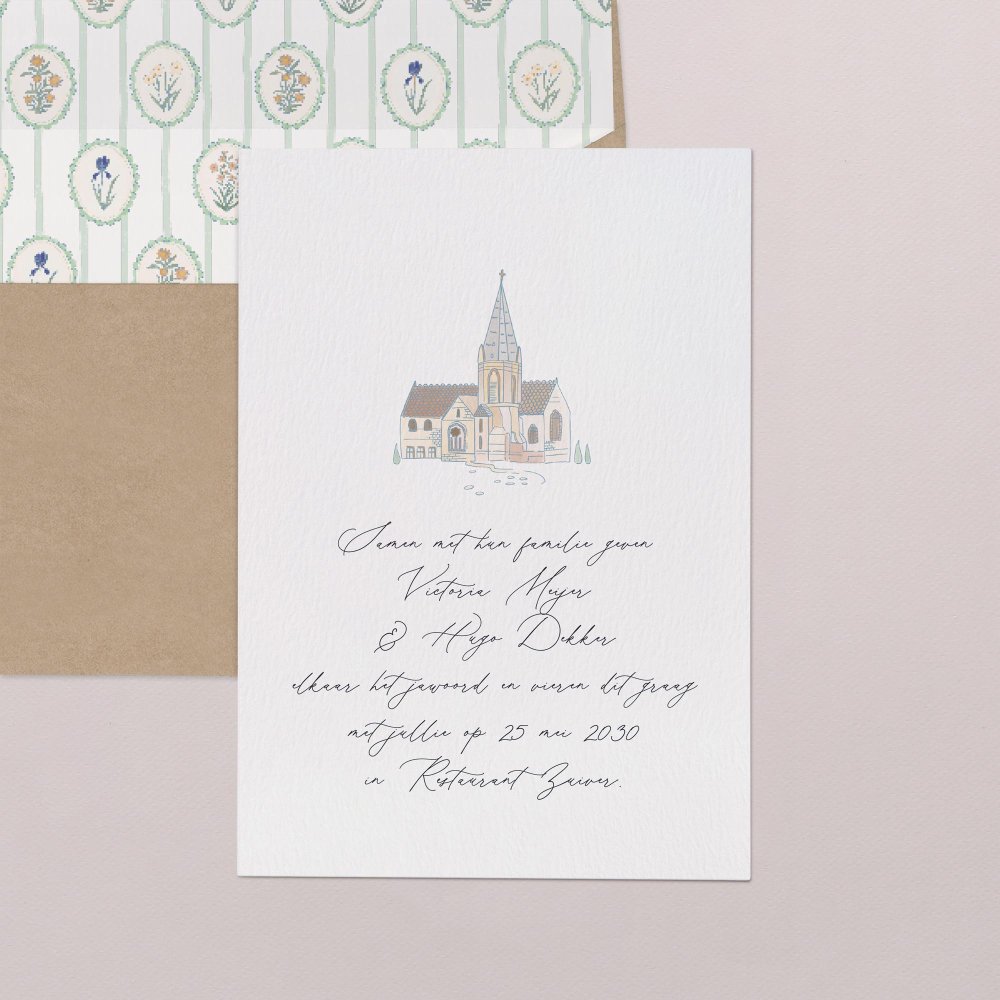 Samen met hun familie geven
Victoria Meijer
& Hugo Dekker
elkaar het jawoord en vieren dit graag
met jullie op 25 mei 2030
in Restaurant Zuiver.